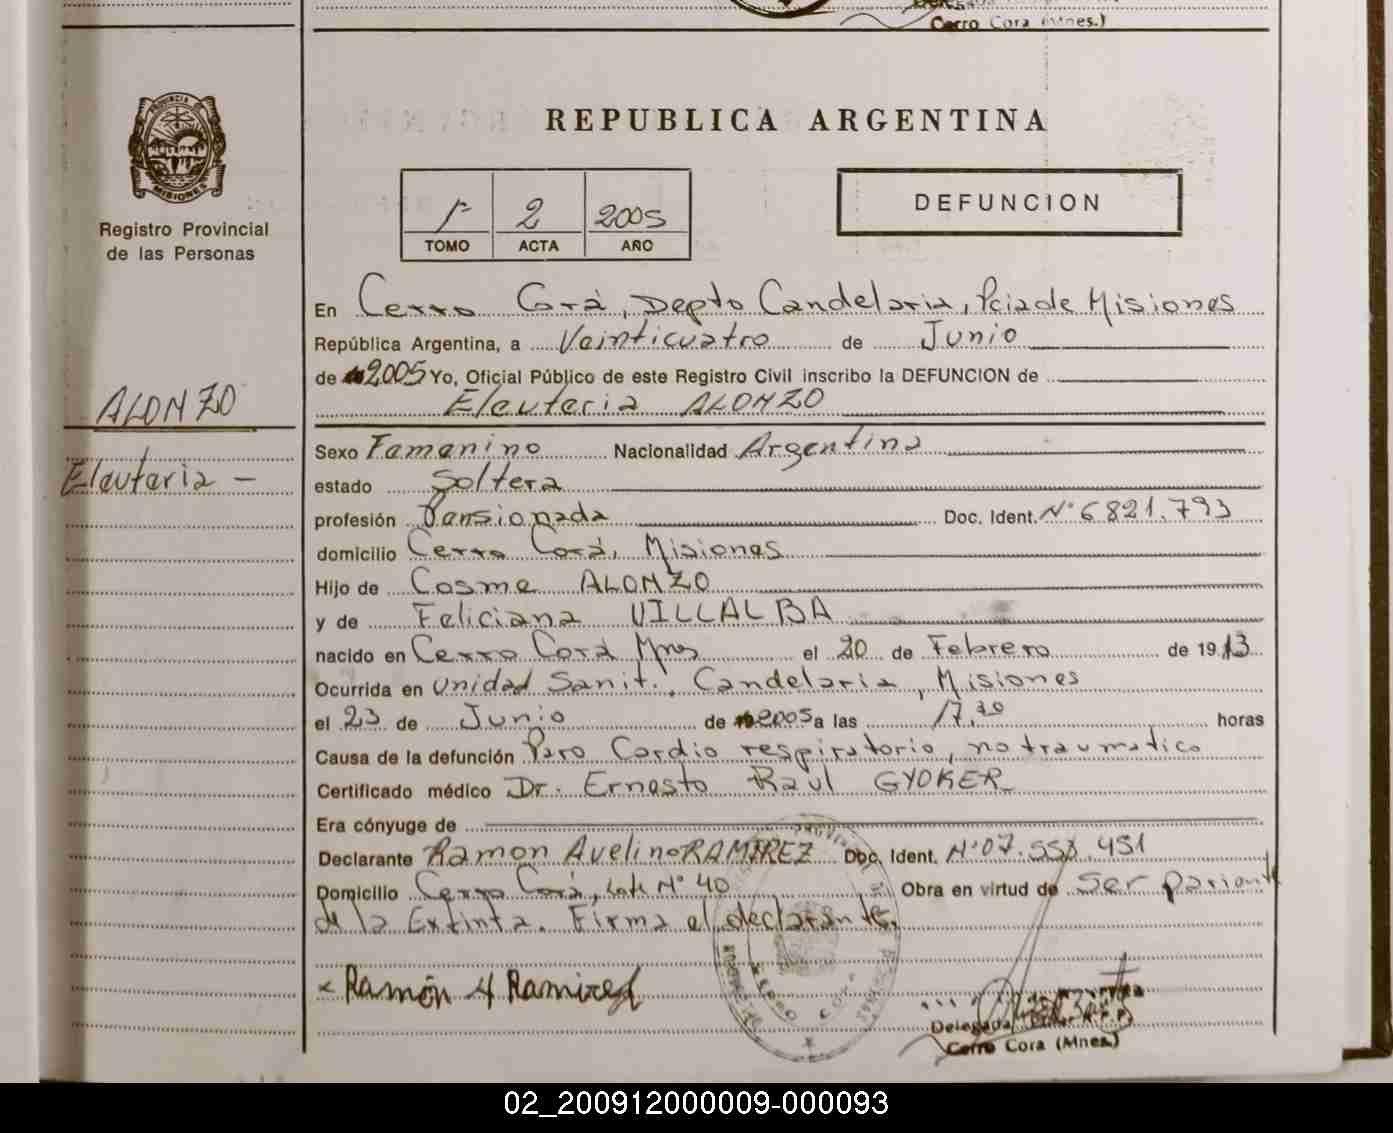 Cerro Cora (Mnes.)
PROVINCIA DE
MISIONES
Registro Provincial
de las Personas
ALONZO
Eleuteria -
REPUBLICA ARGENTINA
1º 2 2005
TOMO ACTA AÑO
DEFUNCION
En Cerro Corá, Depto Candelaria, Pcia de Misiones
República Argentina, a Veinticuatro de Junio
de 2005 Yo, Oficial Público de este Registro Civil inscribo la DEFUNCION de
Eleuteria ALONZO
Sexo Femenino Nacionalidad Argentina
estado Soltera
profesión Pensionada Doc. Ident. Nº 6821.793
domicilio Cerro Corá, Misiones
Hijo de Cosme ALONZO
y de Feliciana VILLALBA
nacido en Cerro Corá Mnes el 20 de Febrero de 1913
Ocurrida en Unidad Sanit., Candelaria, Misiones
el 23 de Junio de 2005 a las 17,30 horas
Causa de la defunción Paro Cardio respiratorio, no traumatico
Certificado médico Dr. Ernesto Raul GYOKER
Era cónyuge de
Declarante Ramon Avelino RAMIREZ Doc. Ident. Nº 07.558.451
Domicilio Cerro Corá, Lote Nº 40 Obra en virtud de Ser pariente
de la Extinta. Firma el declarante.
Ramón A Ramirez
CERRO CORA
Delegada R.P.P.
Cerro Cora (Mnes.)
02_200912000009-000093